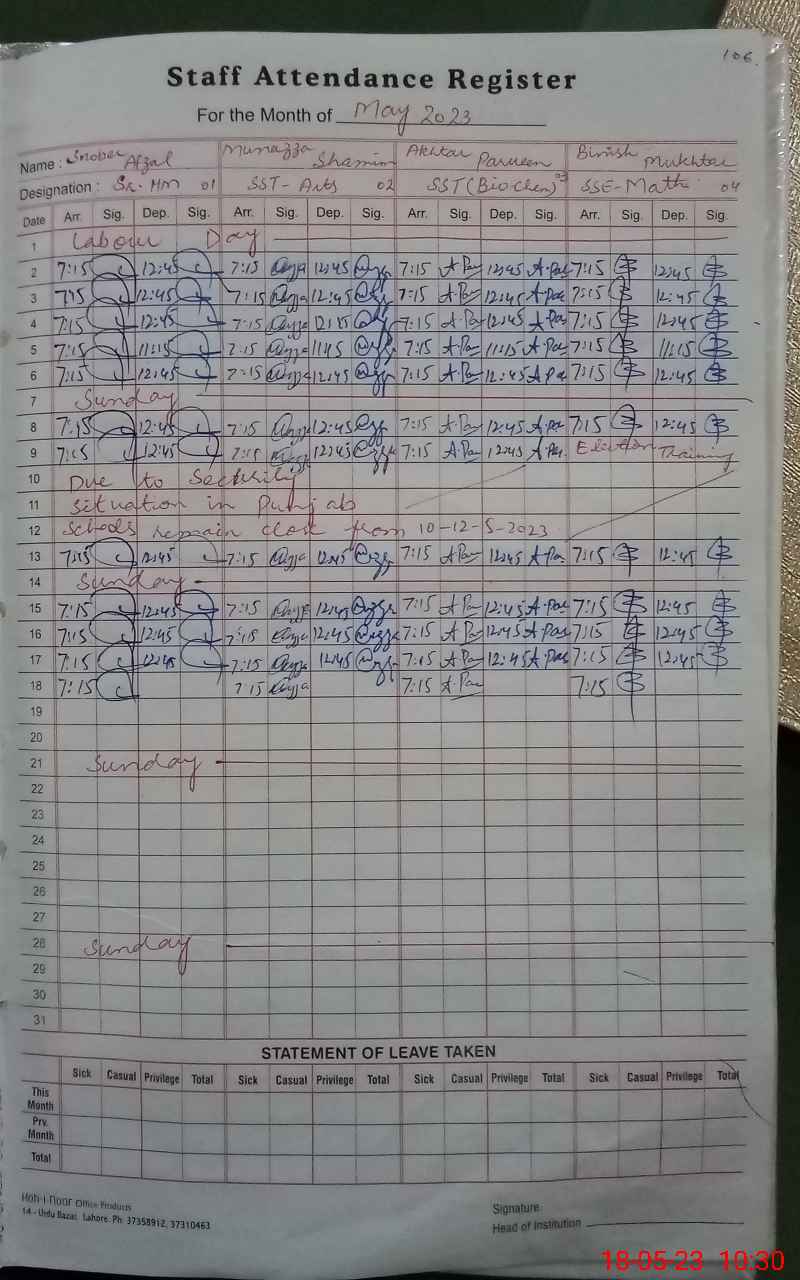 106.
Staff Attendance Register
For the Month of May 2023
Name : Snober Afzal Munazza Shamim Akhtar Parveen Binish Mukhtar
Designation : Sr. HM 01 SST-Arts 02 SST (Bio-Chem) 03 SSE-Math 04
Date Arr. Sig. Dep. Sig. Arr. Sig. Dep. Sig. Arr. Sig. Dep. Sig. Arr. Sig. Dep. Sig.
1 Labour Day
2 7:15 12:45 7:15 12:45 7:15 A.Par 12:45 A.Par 7:15 12:45
3 7:15 12:45 7:15 12:45 7:15 A.Par 12:45 A.Par 7:15 12:45
4 7:15 12:45 7:15 12:45 7:15 A.Par 12:45 A.Par 7:15 12:45
5 7:15 11:15 7:15 11:15 7:15 A.Par 11:15 A.Par 7:15 11:15
6 7:15 12:45 7:15 12:45 7:15 A.Par 12:45 A.Par 7:15 12:45
7 Sunday
8 7:15 12:45 7:15 12:45 7:15 A.Par 12:45 A.Par 7:15 12:45
9 7:15 12:45 7:15 12:45 7:15 A.Par 12:45 A.Par Election Training
10 Due to Security
11 situation in Punjab
12 Schools remain close from 10-12-5-2023
13 7:15 12:45 7:15 12:45 7:15 A.Par 12:45 A.Par 7:15 12:45
14 Sunday
15 7:15 12:45 7:15 12:45 7:15 A.Par 12:45 A.Par 7:15 12:45
16 7:15 12:45 7:15 12:45 7:15 A.Par 12:45 A.Par 7:15 12:45
17 7:15 12:45 7:15 12:45 7:15 A.Par 12:45 A.Par 7:15 12:45
18 7:15 7:15 7:15 A.Par 7:15
19
20
21 Sunday
22
23
24
25
26
27
28 Sunday
29
30
31
STATEMENT OF LEAVE TAKEN
Sick Casual Privilege Total Sick Casual Privilege Total Sick Casual Privilege Total Sick Casual Privilege Total
This Month
Prv. Month
Total
Koh-i-noor Office Products
14 - Urdu Bazar, Lahore. Ph: 37358912, 37310463
Signature
Head of Institution
18-05-23 10:30